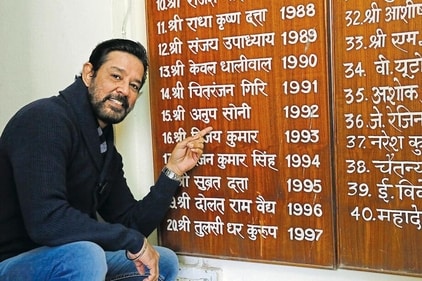 10.श्री
11.श्री राधा कृष्ण दत्ता 1988
12.श्री संजय उपाध्याय 1989
13.श्री केवल धालीवाल 1990
14.श्री चितरंजन गिरि 1991
15.श्री अनुप सोनी 1992
16.श्री कुमार 1993
कुमार सिंह 1994
श्री सुब्रत दत्ता 1995
19.श्री दोलत राम वैद्य 1996
20.श्री तुलसी धर कुरुप 1997
32.श्री आशीष
33.श्री राम
34. वी.
35. अशोक
36.जे.
37.नरेश
38. चैतन्य
39.ई.
40.